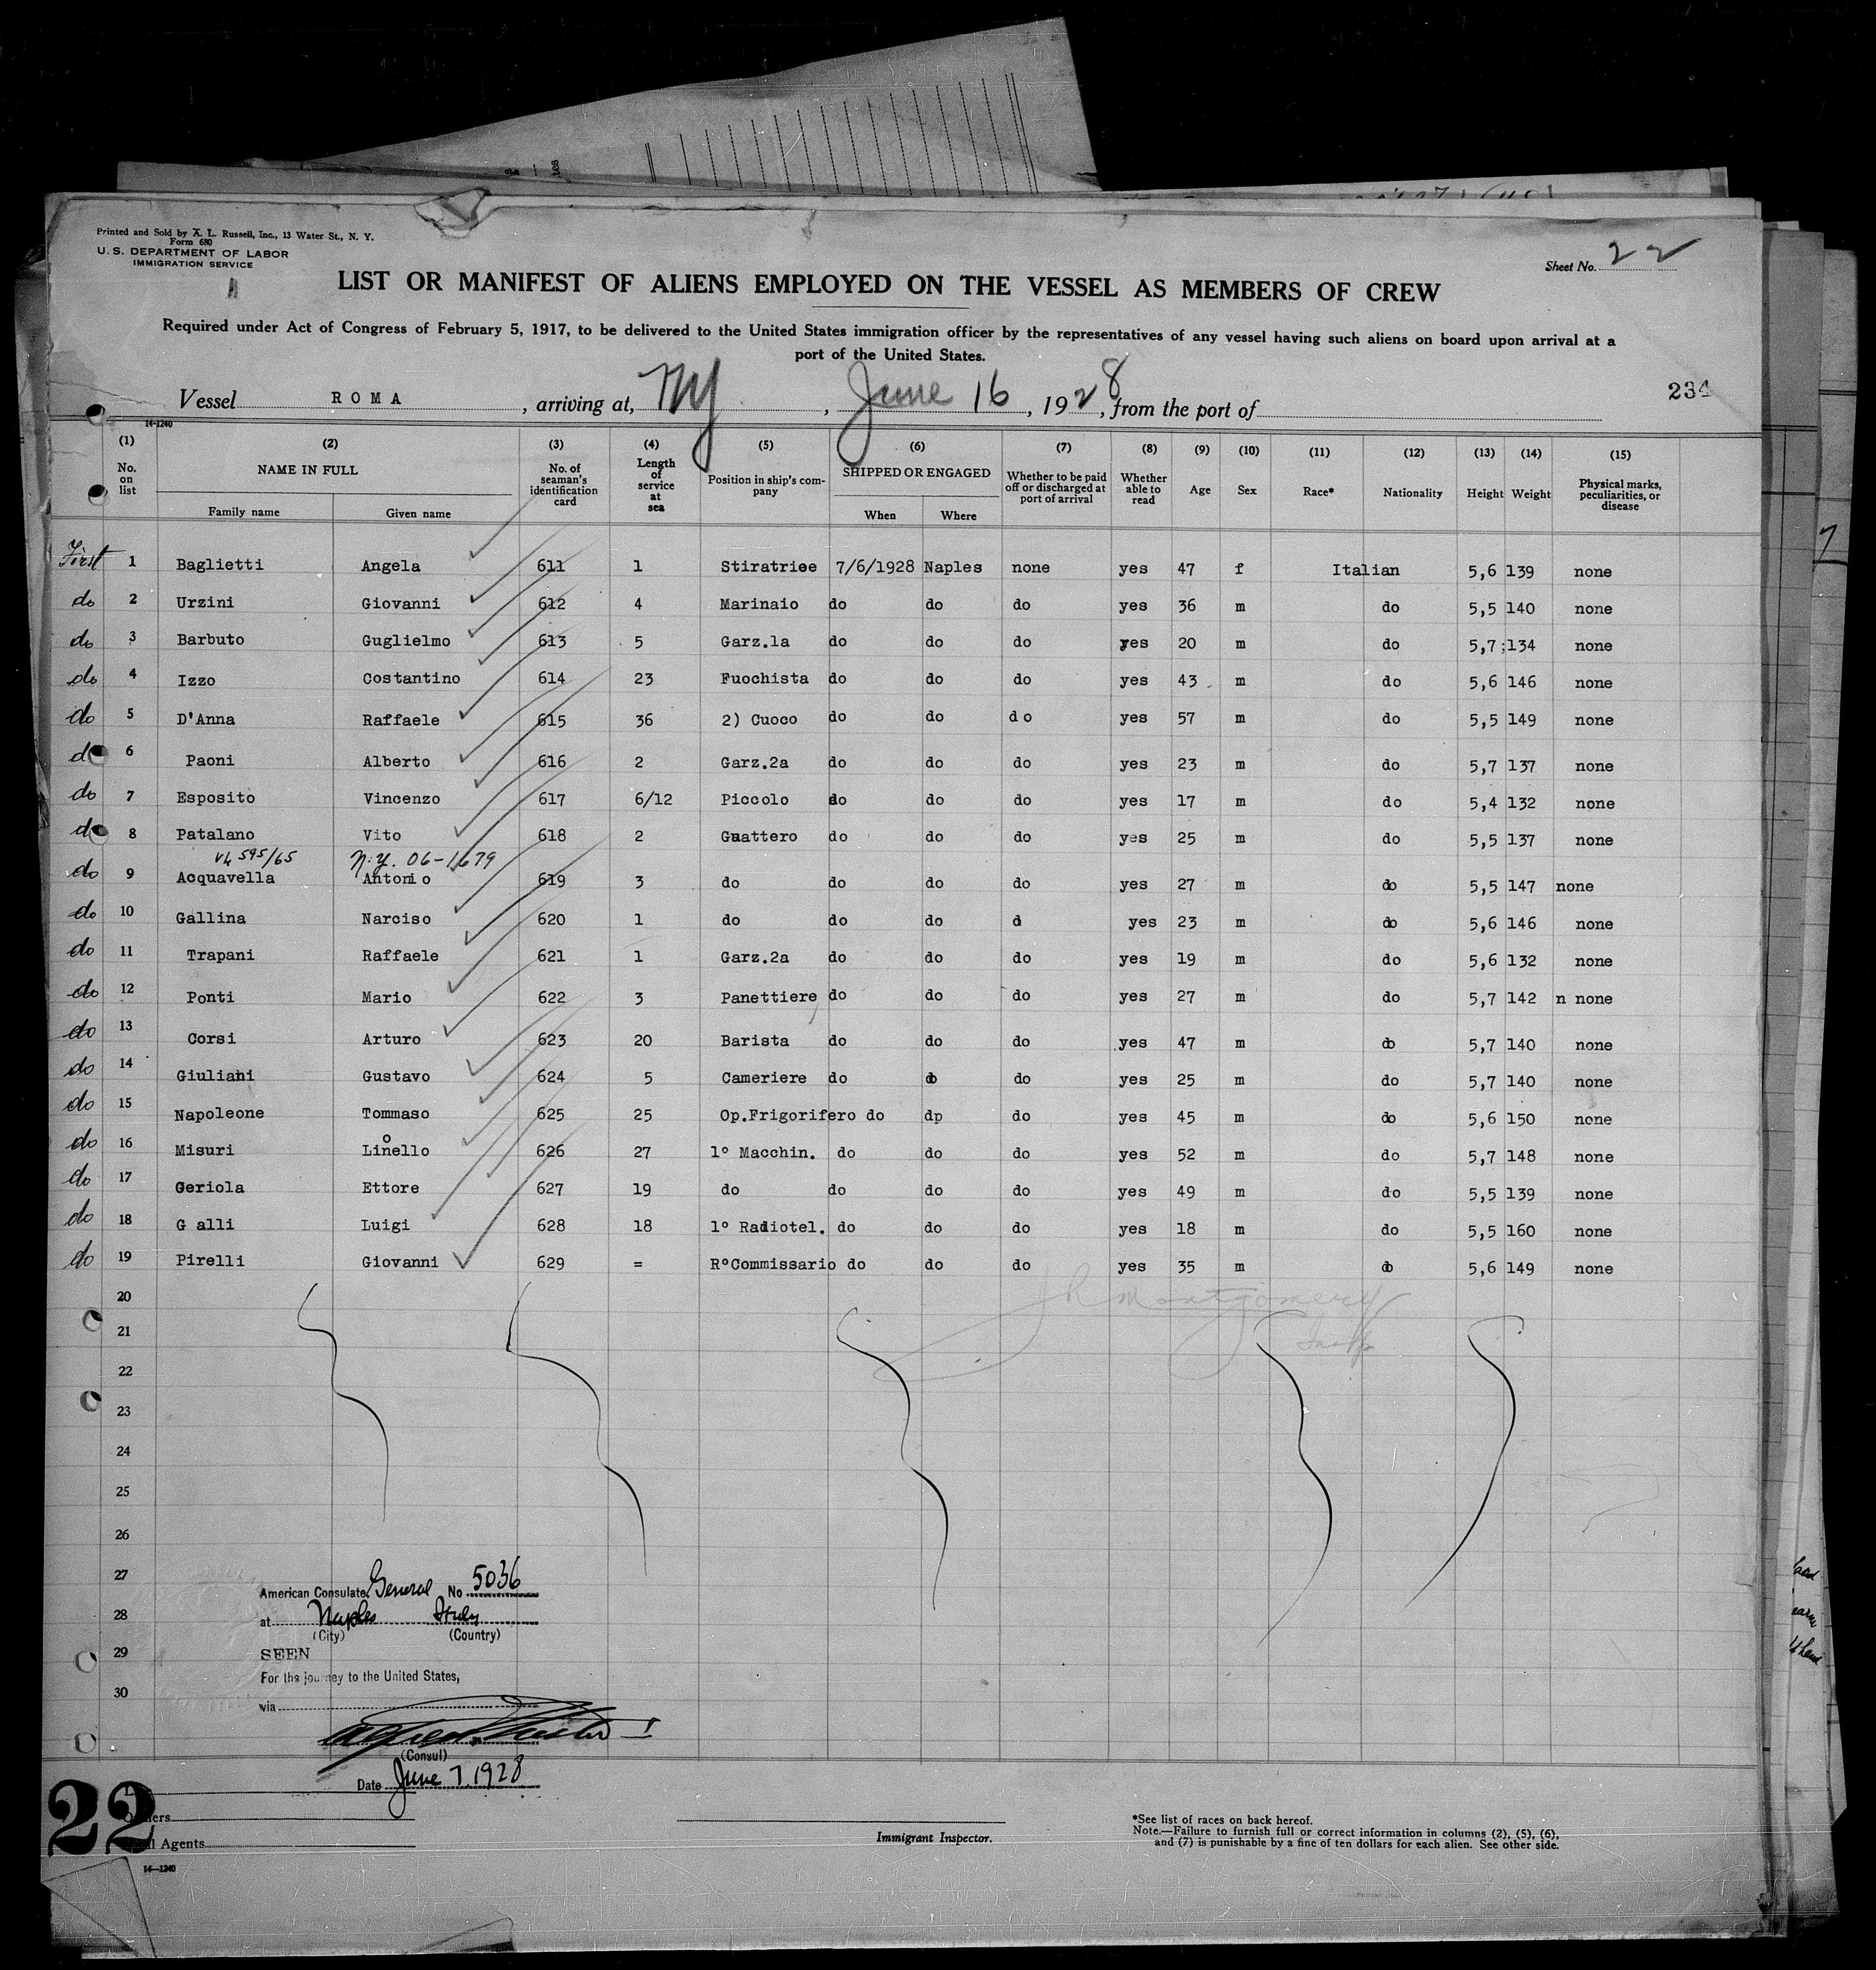 Printed and Sold by X. L. Russell, Inc., 13 Water St., N. Y.
Form 680
U. S. DEPARTMENT OF LABOR
IMMIGRATION SERVICE
Sheet No. 22
LIST OR MANIFEST OF ALIENS EMPLOYED ON THE VESSEL AS MEMBERS OF CREW
Required under Act of Congress of February 5, 1917, to be delivered to the United States immigration officer by the representatives of any vessel having such aliens on board upon arrival at a
port of the United States.
Vessel ROMA, arriving at, NY, June 16, 1928, from the port of
234
14-1240
(1) (2) (3) (4) (5) (6) (7) (8) (9) (10) (11) (12) (13) (14) (15)
No. on list NAME IN FULL Family name Given name No. of seaman's identification card Length of service at sea Position in ship's company SHIPPED OR ENGAGED When Where Whether to be paid off or discharged at port of arrival Whether able to read Age Sex Race* Nationality Height Weight Physical marks, peculiarities, or disease
First 1 Baglietti Angela 611 1 Stiratriee 7/6/1928 Naples none yes 47 f Italian 5,6 139 none
do 2 Urzini Giovanni 612 4 Marinaio do do do yes 36 m do 5,5 140 none
do 3 Barbuto Guglielmo 613 5 Garz.1a do do do yes 20 m do 5,7;134 none
do 4 Izzo Costantino 614 23 Fuochista do do do yes 43 m do 5,6 146 none
do 5 D'Anna Raffaele 615 36 2) Cuoco do do d o yes 57 m do 5,5 149 none
do 6 Paoni Alberto 616 2 Garz.2a do do do yes 23 m do 5,7 137 none
do 7 Esposito Vincenzo 617 6/12 Piccolo do do do yes 17 m do 5,4 132 none
do 8 Patalano Vito 618 2 Guattero do do do yes 25 m do 5,5 137 none
595/65 N.Y. 06-1679
do 9 Acquavella Antonio 619 3 do do do do yes 27 m do 5,5 147 none
do 10 Gallina Narciso 620 1 do do do d yes 23 m do 5,6 146 none
do 11 Trapani Raffaele 621 1 Garz.2a do do do yes 19 m do 5,6 132 none
do 12 Ponti Mario 622 3 Panettiere do do do yes 27 m do 5,7 142 n none
do 13 Corsi Arturo 623 20 Barista do do do yes 47 m do 5,7 140 none
do 14 Giuliani Gustavo 624 5 Cameriere do do do yes 25 m do 5,7 140 none
do 15 Napoleone Tommaso 625 25 Op.Frigorifero do dp do yes 45 m do 5,6 150 none
do 16 Misuri Linello 626 27 1º Macchin. do do do yes 52 m do 5,7 148 none
do 17 Geriola Ettore 627 19 do do do do yes 49 m do 5,5 139 none
do 18 G alli Luigi 628 18 1º Radiotel. do do do yes 18 m do 5,5 160 none
do 19 Pirelli Giovanni 629 = RºCommissario do do do yes 35 m do 5,6 149 none
20
J R Montgomery
21
Insp
22
23
24
25
26
27
American Consulate General No. 5036
28
at Naples Italy
(City) (Country)
29
SEEN
For the journey to the United States,
30
via
(Consul)
Date June 7, 1928
22
Owners
Agents
14-1240
Immigrant Inspector.
*See list of races on back hereof.
Note.—Failure to furnish full or correct information in columns (2), (5), (6),
and (7) is punishable by a fine of ten dollars for each alien. See other side.